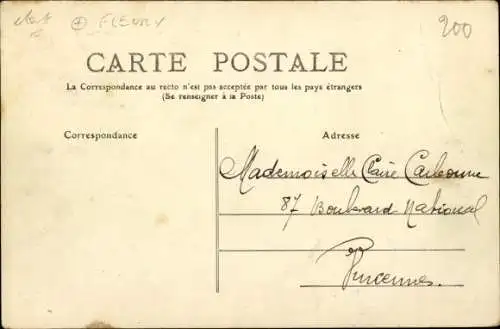 FLEURY
200
CARTE POSTALE
La Correspondance au recto n'est pas acceptée par tous les pays étrangers
(Se renseigner à la Poste)
Correspondance
Adresse
Mademoiselle Claire Carbonne
87 Boulevard National
Vincennes.